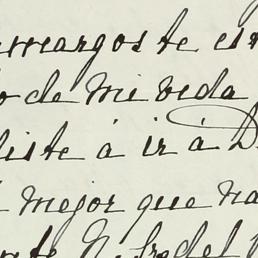 amargos te es
o de mi vida
liste á ir á D
mejor que na